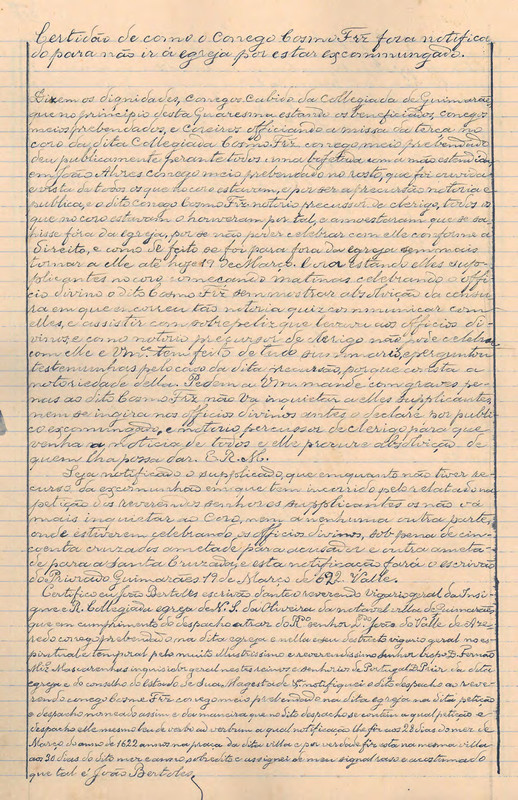 Certidão de como o Conego Cosmo Frz fora notifica
do para não ir á egreja por estar excommungado.
Dizem os dignidades, conegos, cabido da Collegiada de Guimarães
que no principio desta Quaresma estando os beneficiados, conegos
meios prebendados, e Coreiros officiando a missa da terça no
coro da dita Collegiada Cosmo Frz conego meio prebendado
deu publicamente perante todos uma bofetada com a mão estendida
em João Alvres conego meio prebendado no rosto, que foi ouvida e
vista de todos os que no coro estavam, e por ser a precursão notoria e
publica, e o dito conego Cosmo Frz notorio precussor de clerigo, todos os
que no coro estavam o houveram por tal, e amoestaram que se sa-
isse fóra da egreja, por se não poder celebrar com elle conforme a
Direito, e como de feito se foi para fóra da egreja sem mais
tornar a elle até hoje 19 de Março. E ora estando elles sup-
plicantes no coro, começando matinas celebrando o offi-
cio divino o dito Cosmo Frz sem mostrar absolvição da censu-
ra em que encorreu tão notoria quiz communicar com
elles, e assistir com sobrepeliz que levava aos officios di-
vinos, e como notorio precursor de clerigo não póde celebrar
com elle e Vmce tem feito de tudo summario, e perguntou
testemunhas pelo caso da dita precursão, porque consta a
notoriedade della. Pedem a Vm mande com graves pe-
nas ao dito Cosmo Frz não vá inquietar a elles supplicantes,
nem se ingira nos officios divinos antes o declare por publi-
co excommungado, e notorio percussor de clerigo para que
venha a noticia de todos e elle procure absolvição de
quem lha possa dar. E. R. M.
Seja notificado o supplicado, que emquanto não tiver re-
curso da excommunhão em que tem incorrido pelo relatado na
petição dos reverendos senhores supplicantes os não vá
mais inquietar ao Coro, nem a nenhuma outra parte,
onde estiverem celebrando os officios divinos, sob pena de cin-
coenta cruzados ametade para accusador e outra ameta-
de para a Santa Cruzada, e esta notificação fará o escrivão
do Priorado Guimarães 19 de Março de 622. Valle.
Certifico eu João Bertoles escrivão dante o reverendo Vigario geral da Insi-
gne e R. Collegiada egreja de N. S. da Oliveira da notavel villa de Guimarães
que em cumprimento do despacho atraz do Rdo senhor do Valle de Aze-
redo conego prebendado na dita egreja e nella e seu destricto vigario geral no es-
piritual e temporal pelo muito Illustrissimo e reverendissimo senhor bispo D. Fernão
Miz Mascarenhas inquisidor geral nestes reinos e senhorios de Portugal D. Prior da dita
egreja e do conselho do Estado de Sua Magestade &ª notifiquei o dito despacho ao reve-
rendo conego Cosme Frz conego meio prebendado na dita egreja na dita petição
e despacho nomeado assim e da maneira que no dito despacho se contém a qual petição e
despacho elle mesmo leu de verbo ad verbum a qual notificação lhe fiz aos 28 dias do mez de
Março do anno de 1622 annos na praça da dita villa e por verdade fiz esta na mesma villa
aos 30 dias do dito mez e anno sobredito e assignei de meu signal raso e acostumado
que tal é João Bertoles